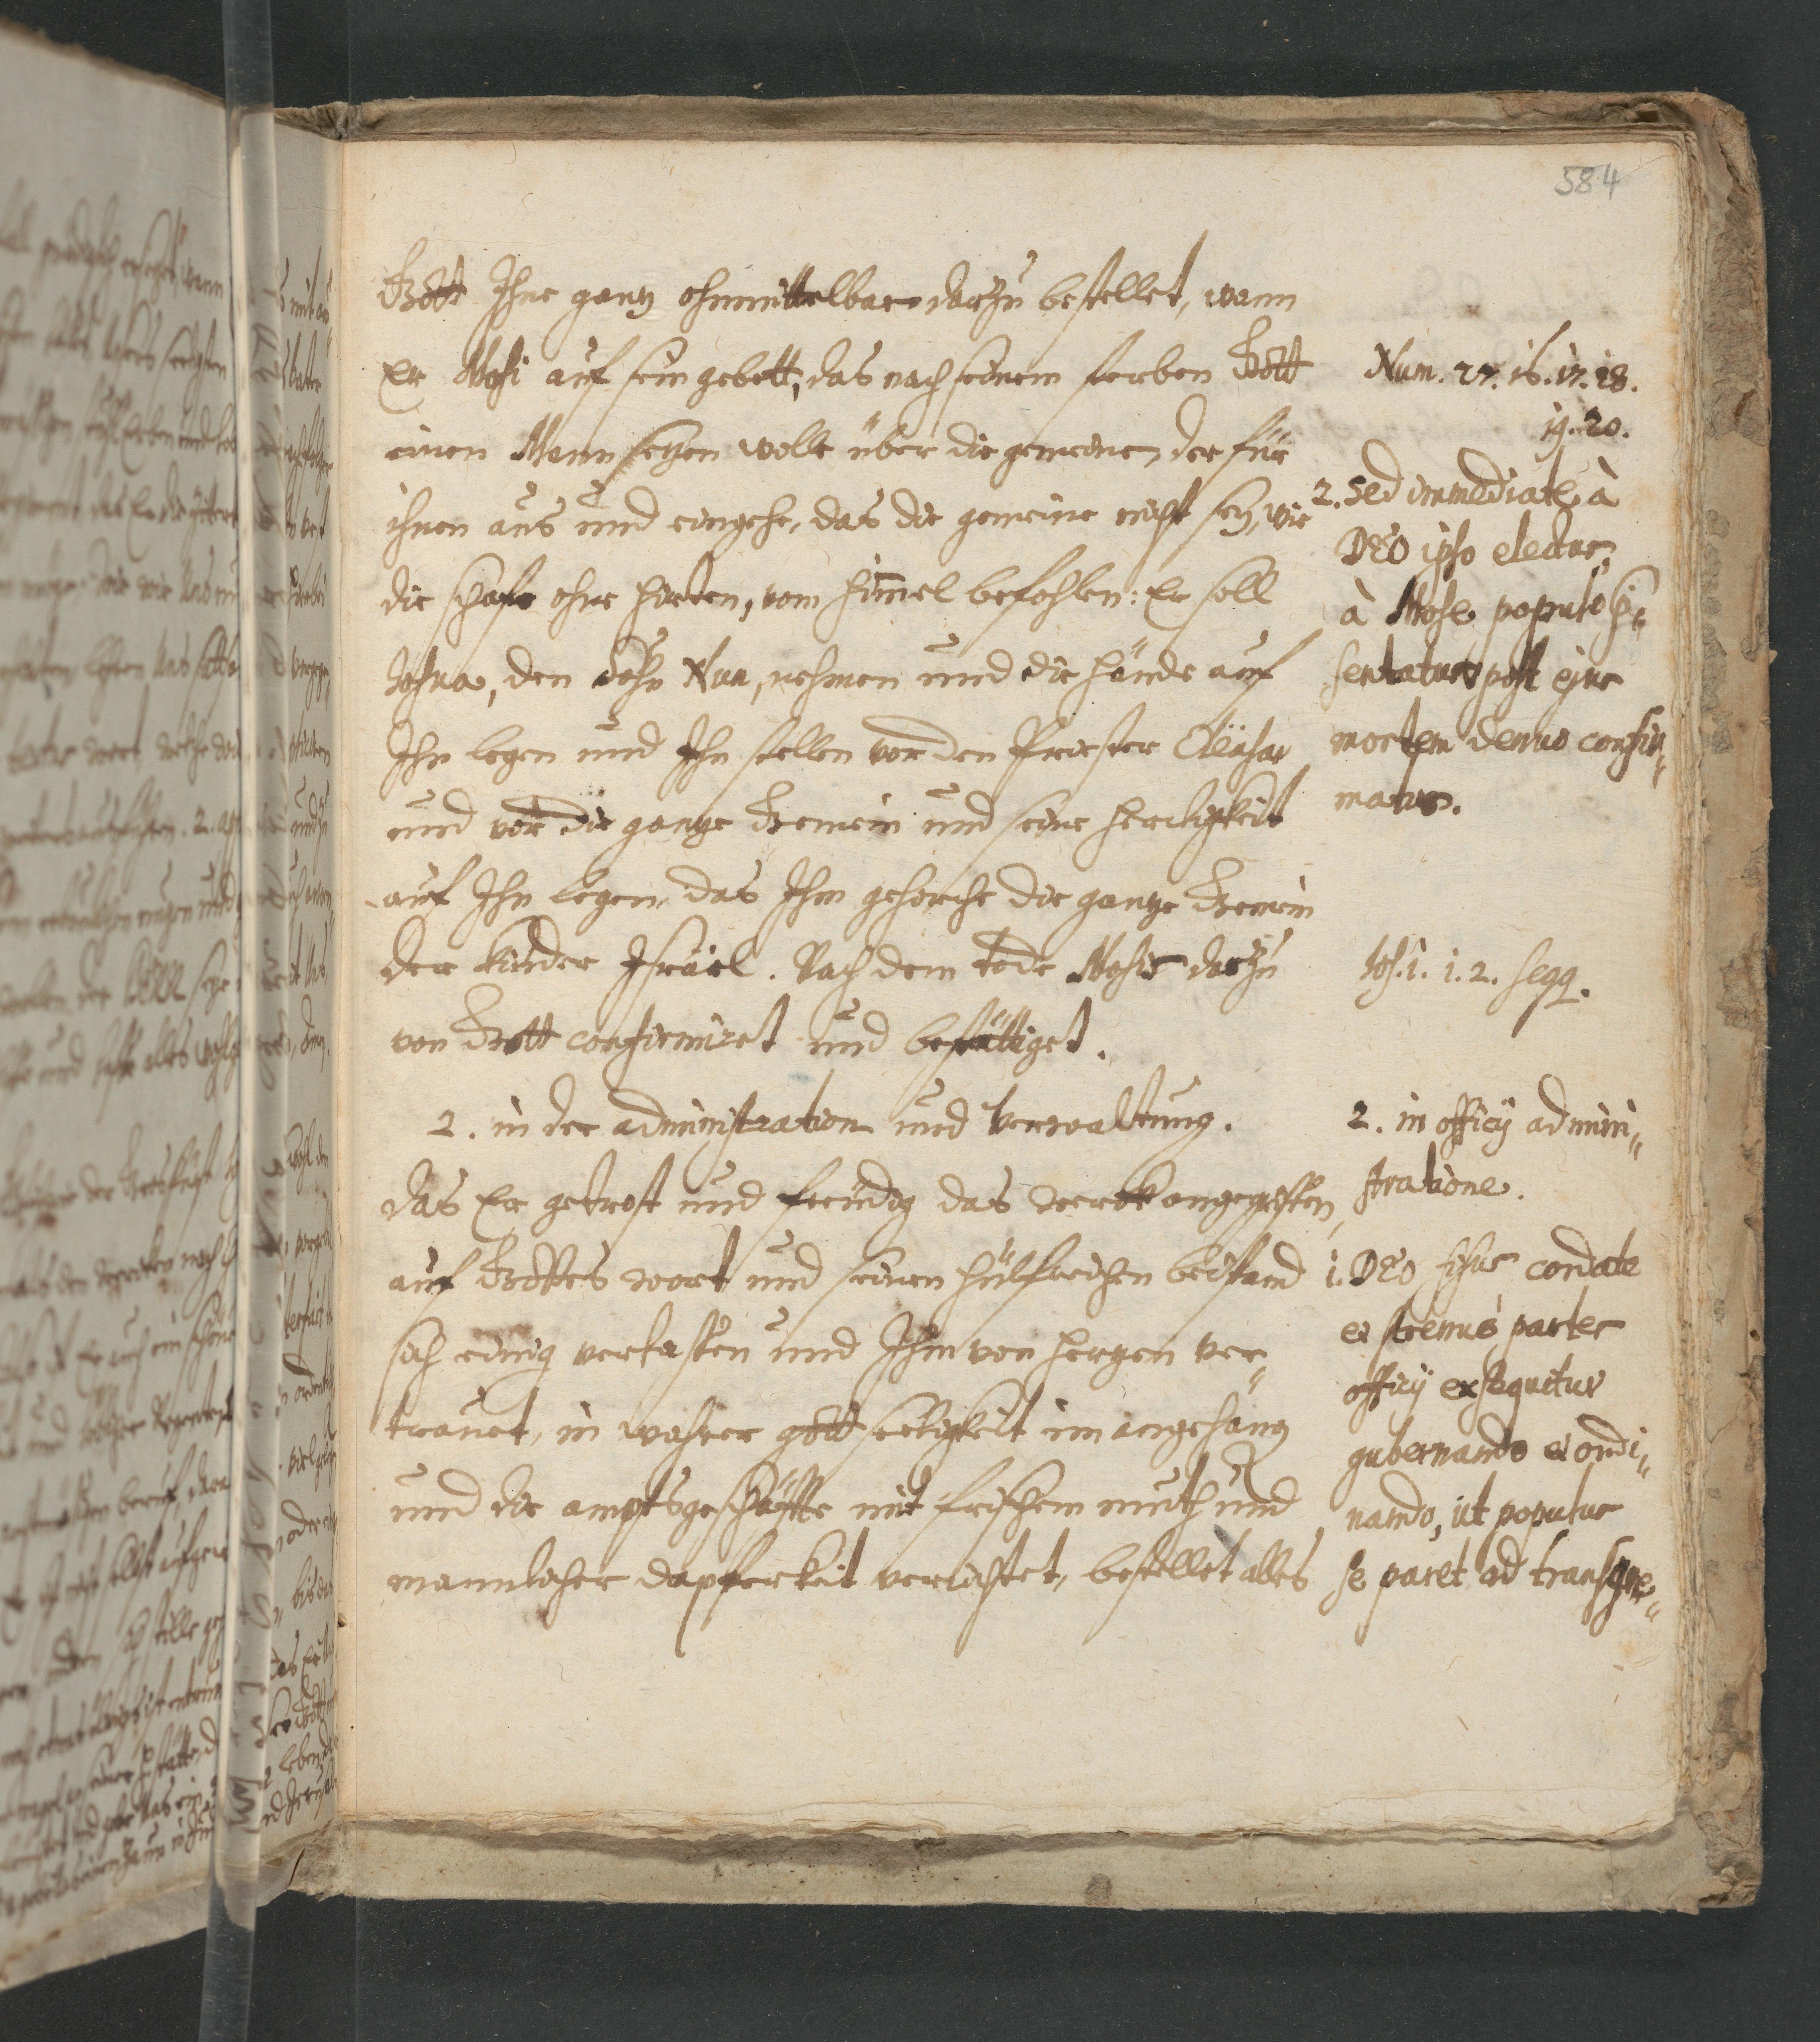 584
Gott Ihne gantz ohnmittelbar darzu bestellet, wann
Er Mosi auf sein gebett, das nach seinem sterben Gott
einen Mann setzen wolle über die gemeine, der für
ihnen aus und eingehe, das die gemeine nicht sey, wie
die schafe ohne hirten, vom himel befohlen: Er soll
Josua, den Sohn Nun, nehmen und die hände auf
Ihn legen und Ihn stellen vor den Priester Eleasar
und vor die gantze Gemein und seine herlichkeit
auf Ihn legen, das Ihm gehorche die gantze Gemein
der kinder Israel. Nach dem tode Mosis darzu
von Gott confirmiret und bestättiget.
2. in der administration und Verwaltung.
das Er getrost und freüdig das werck angegriffen,
auf Gottes wort und seinen hülfreichen beistand
sich einig verlassen und Ihm von hertzen ver„
trauet, in wahrer gottseeligkeit im angehang
und die amptsgeschäffte mit frischem muth und
mannlicher dapfferkeit verrichtet, bestellet alles
Num. 27. 16. 17. 18.
19. 20.
2. sed immediate à
DEO ipso electus,
à Mose populo præ„
sentatus post ejus
mortem denuo confir„
matus.
Jos. 1. 1. 2. seqq.
2. in officij admini„
stratione.
1. DEO fisus cordate
et strenue partes
officij exsequitur
gubernando et ordi„
nando, ut populus
se paret ad transgre„